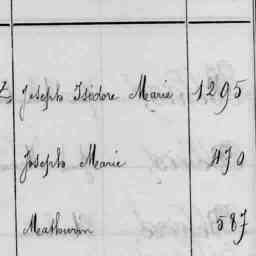 Joseph Isidore Marie 1295
Joseph Marie 470
Mathurin 587